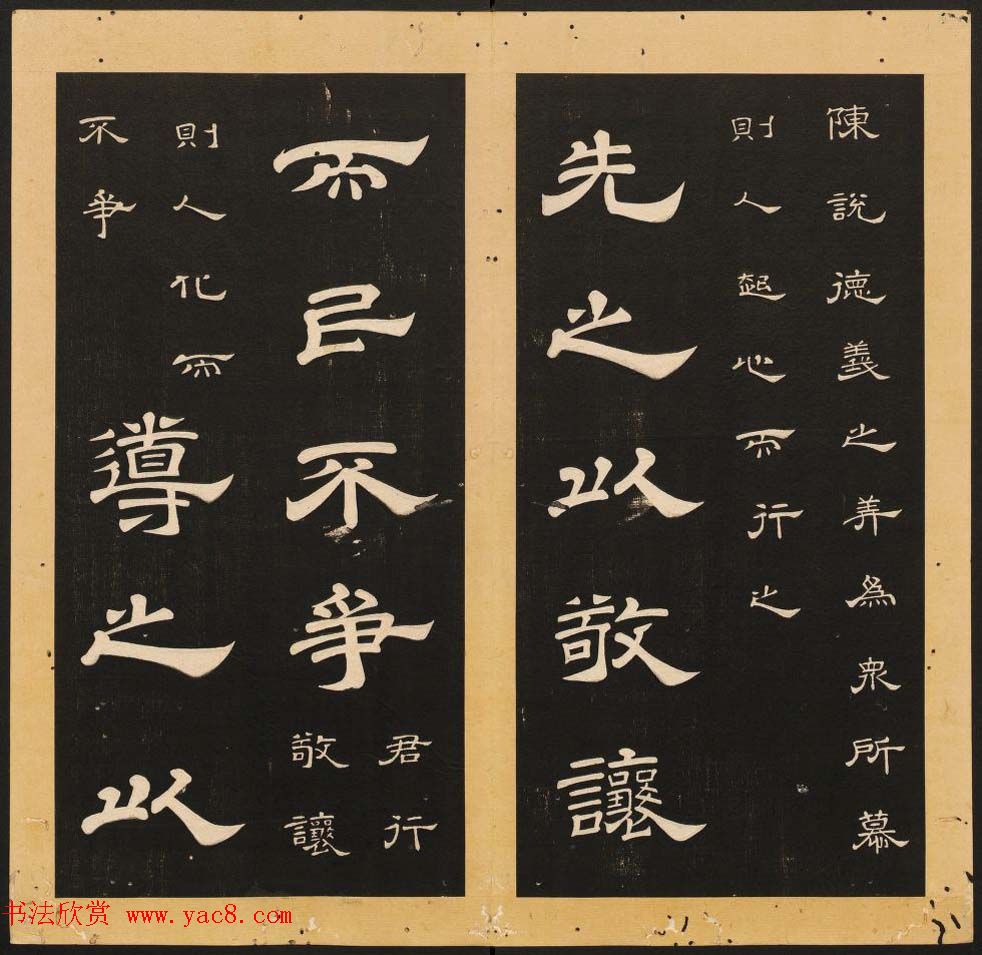 陳說德義之美為眾所慕
則人起心而行之
先之以敬讓
而民不爭
君行
敬讓
則人化而
不爭
導之以
书法欣赏 www.yac8.com